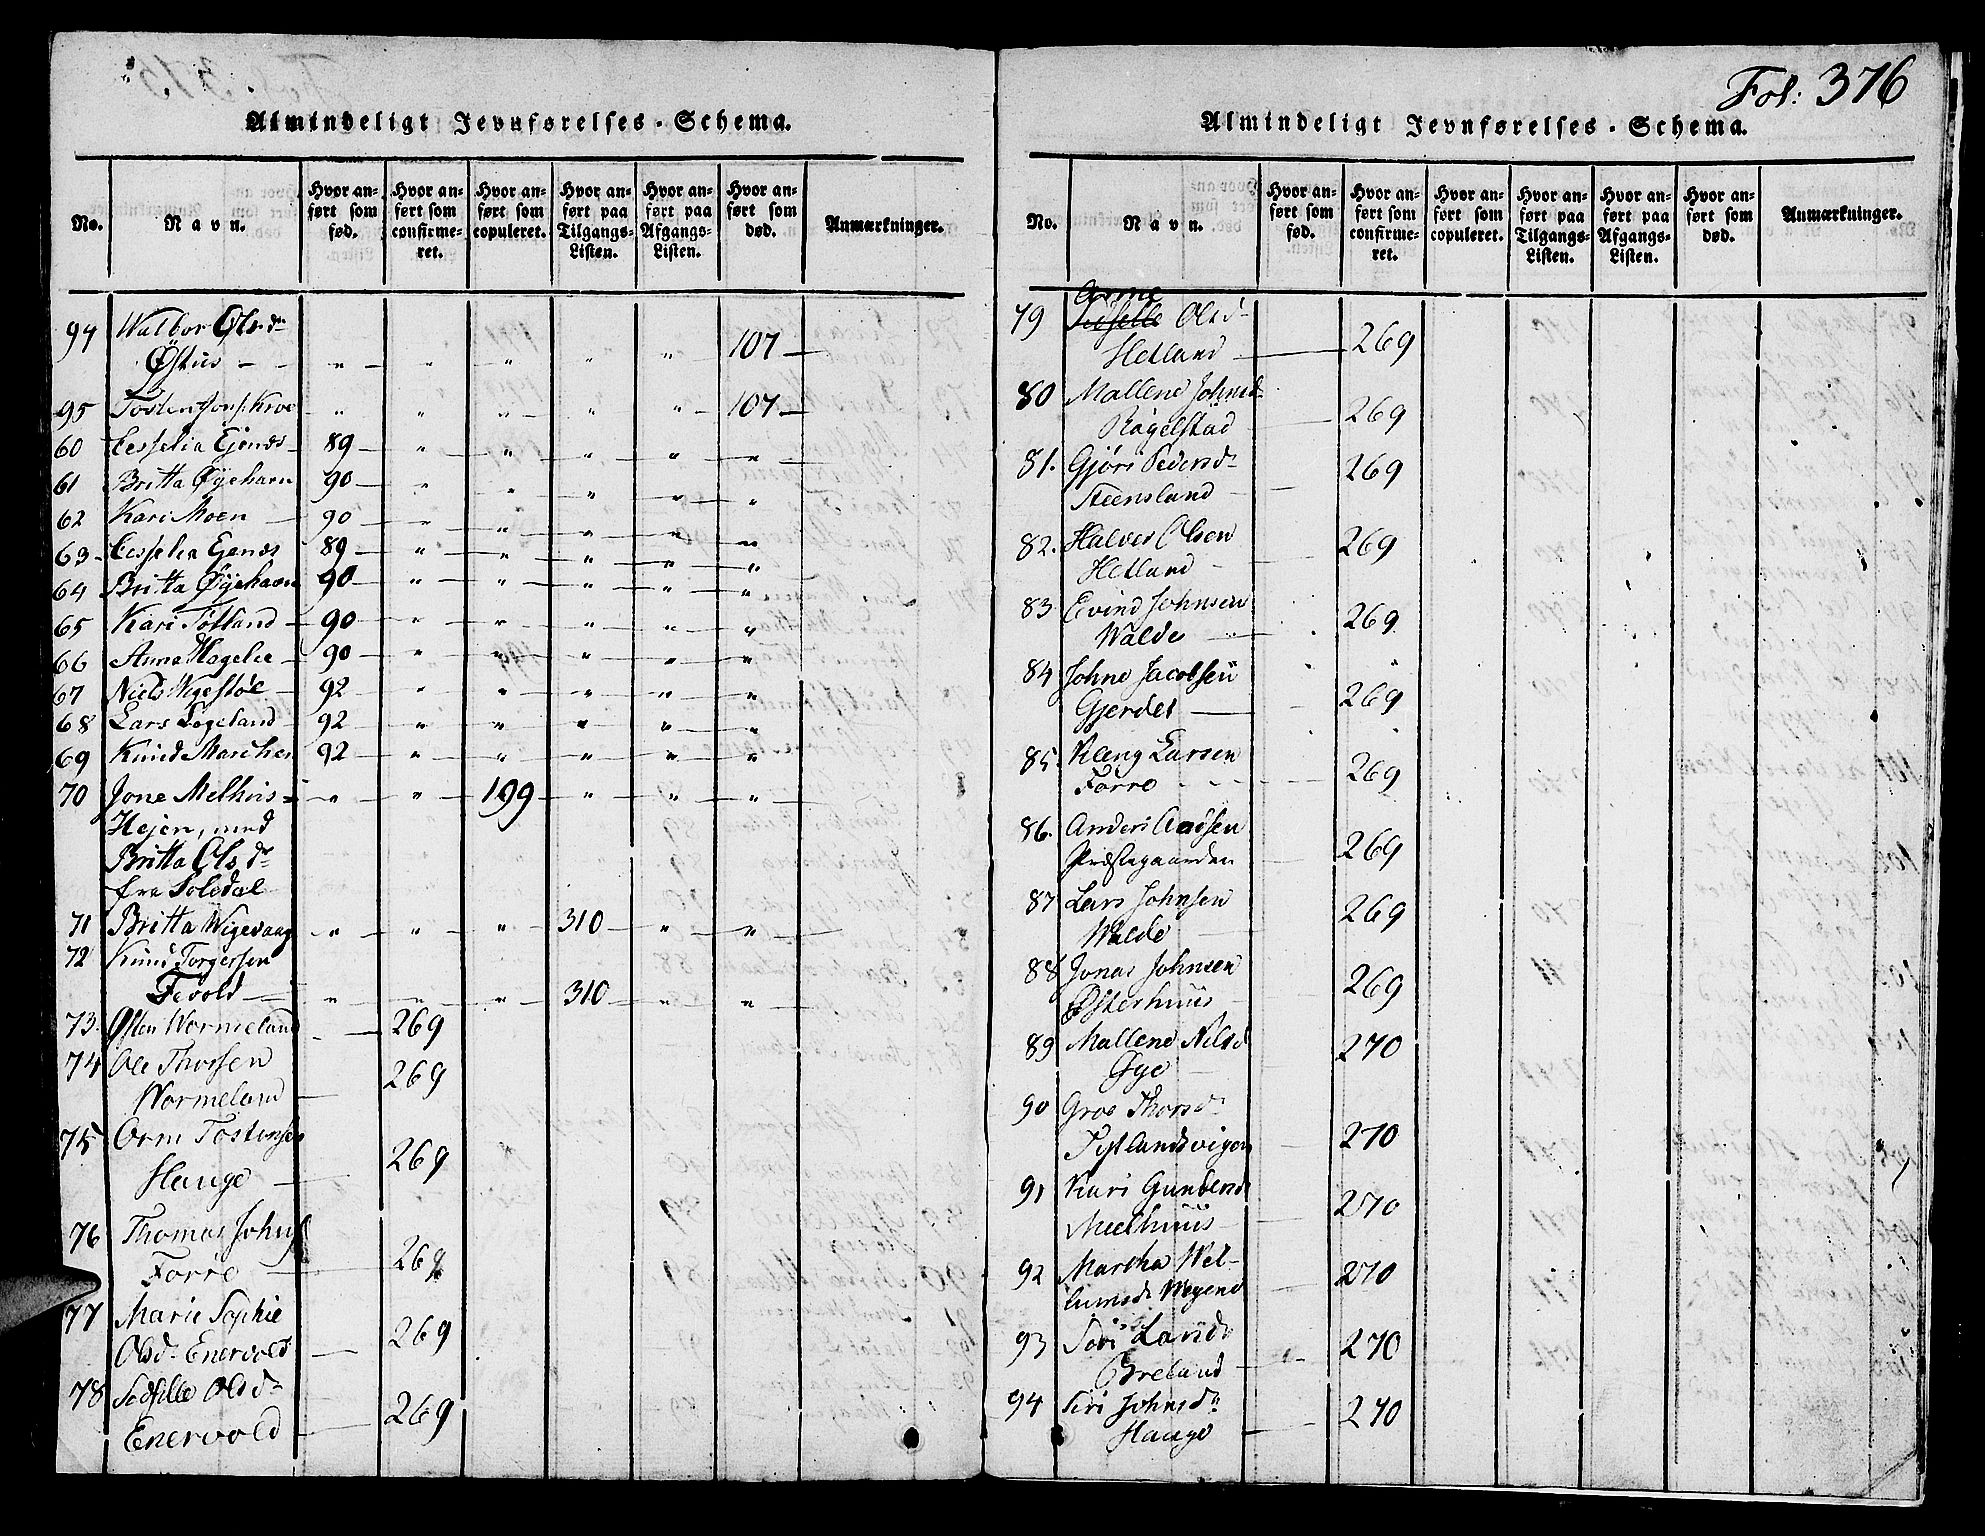 Fol: 376
Almindeligt Jevnførelses-Schema.
No. Navn. Hvor anført som fød. Hvor anført som confirmeret. Hvor anført som copuleret. Hvor anført paa Tilgangs-Listen. Hvor anført paa Afgangs-Listen. Hvor anført som død. Anmærkninger.
94 Walbor Olsdr
Østus - - „ - „ „ „ „ 107 -
95 Tosten Jons. Kroe „ „ „ „ „ 107 -
60 Cesselia Ejenæs 89 - „ „ „ „ „
61 Britta Øyehavn 90 - „ „ „ „ „
62 Kari Moen 90 - „ „ „ „ „
63 Cesselia Ejenæs 89 - „ „ „ „ „
64 Britta Øyehavn 90 - „ „ „ „ „
65 Kari Totland 90 „ „ „ „ „
66 Anna Hagelie 90 „ „ „ „ „
67 Niels Wigestøl 92 „ „ „ „ „
68 Lars Løgeland 92 „ „ „ „ „
69 Knud 92 „ „ „ „ „
70 Jone Melhus= „ „ 199 „ „ „
Hejen, med
Britta Olsdr
fra Soledal
71 Britta Wigevaag „ „ „ 310 „ „
72 Knud Torgersen
Tevold „ „ „ 310 „ „
73. Østen Wormeland 269
74 Ole Thorsen
Wormeland 269
75 Orm Tostensen
Hauge 269
76 Thomas Johns
Førre 269
77 Marie Sophie
Olsd. Enervold 269
78 Sedselle Olsdr
Enervold 269
Almindeligt Jevnførelses-Schema.
No. Navn. Hvor anført som fød. Hvor anført som confirmeret. Hvor anført som copuleret. Hvor anført paa Tilgangs-Listen. Hvor anført paa Afgangs-Listen. Hvor anført som død. Anmærkninger.
Anne
79 Sedselle Olsdr
Hetland 269
80 Mallene Johnsd
Rägelstad 269
81. Gjøri Pedersdr
Steensland 269
82. Halvor Olsen
Hetland 269
83 Evind Johnsen
Walde 269
84 Johne Jacobsen
Gjerdet 269
85 Kleng Larsen
Førre 269
86. Anders Aadsen
Præstegaarden 269
87 Lars Johnsen
Walde 269
88 Jonas Johnsen
Østerhuus 269
89 Mallene Nilsd
Øye 270
90 Groe Thorsdr
270
91 Kari Gunders
Meelhuus 270
92 Martha Wel-
lumsdr Wegend 270
93 Siri Larsdr
Breland 270
94 Siri Johnsdr
Hauge 270